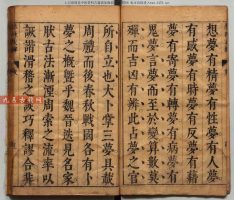 想夢有精夢有性夢有人夢
有感夢有時夢有反夢有藉
夢有寄夢有轉夢有病夢有
鬼夢言夢而至於變算數莫
殫而吉凶有辨此占夢之官
所自立也大卜掌三夢具載
周禮而後春秋戰國各有卜
夢之概暨乎魏晉迭見名家
狀古法漸湮周索之流率以
詼謔滑稽之談巧釋謬合非